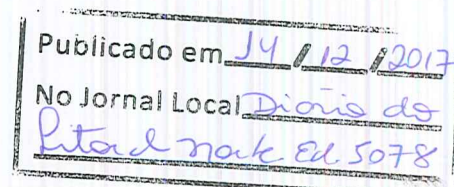 Publicado em 14 / 12 / 2017
No Jornal Local Diário do
Litoral Norte Ed. 5078